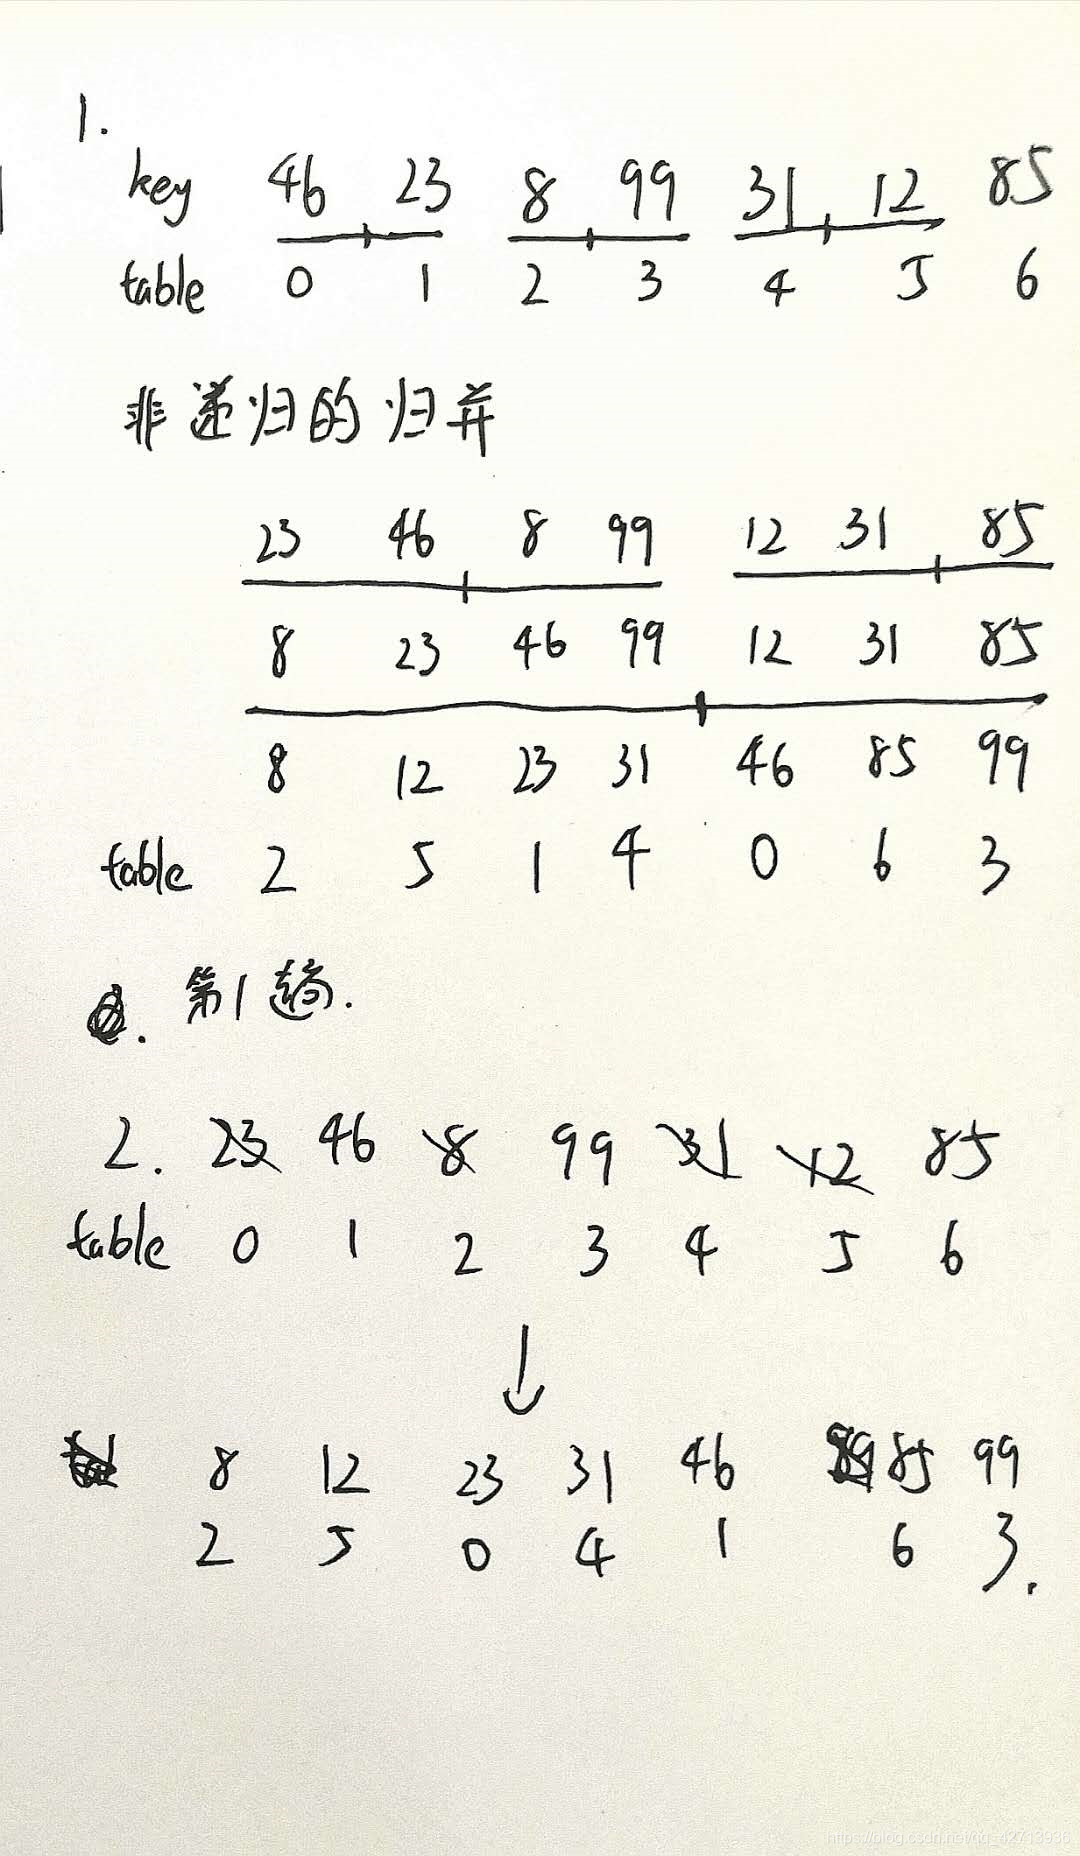 1.
key 46 23 8 99 31 12 85
table 0 1 2 3 4 5 6
非递归的归并
23 46 8 99 12 31 85
8 23 46 99 12 31 85
8 12 23 31 46 85 99
table 2 5 1 4 0 6 3
第1趟.
2. 23 46 8 99 31 12 85
table 0 1 2 3 4 5 6
8 12 23 31 46 85 99
2 5 0 4 1 6 3.
https://blog.csdn.net/qq_42713936